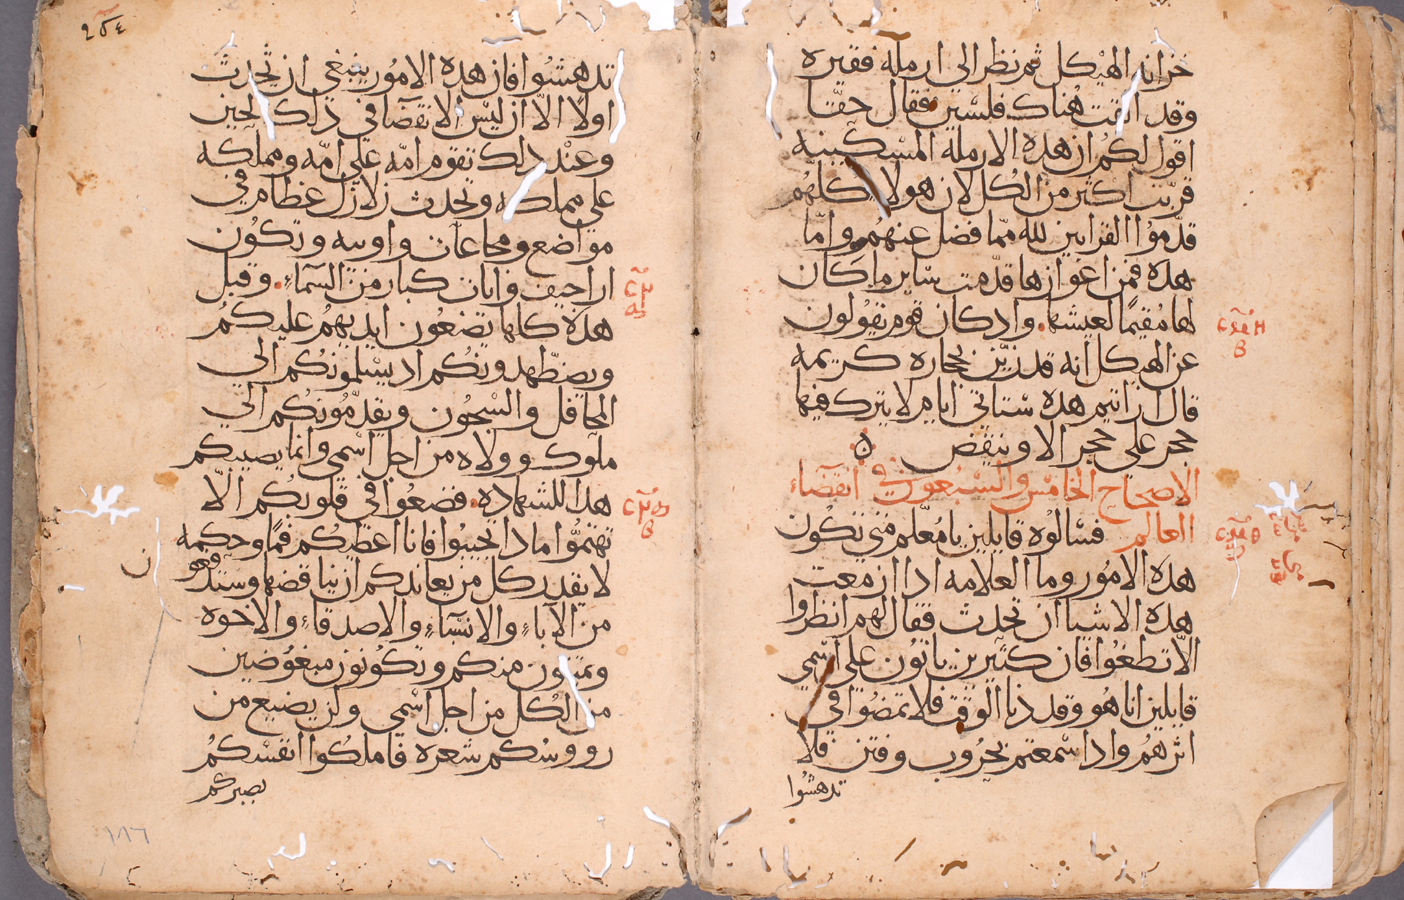 خزانه الهيكل ثم نظر الى ارمله فقيره
وقد القت هناك فلسين فقال حقا
اقول لكم ان هذه الارمله المسكينه
قربت اكثر من الكل لان هولا كلهم
قدموا القرابين لله مما فضل عنهم واما
هذه فمن اعوازها قدمت ساير ما كان
لها مقيما لعيشها. واذ كان قوم يقولون
عن الهيكل انه قد زين بحجاره كريمه
قال ارايتم هذه ستاتى ايام لا يترك فيها
حجر على حجر الا وينقض
الاصحاح الخامس والسبعون فى انقضاء
العالم فسالوه قايلين يا معلم متى تكون
هذه الامور وما العلامه اذا ازمعت
هذه الاشيا ان تحدث فقال لهم انظروا
الا تطغوا فان كثيرين ياتون على اسمي
قايلين انا هو وقد دنا الوقت فلا تمضوا في
اثرهم واذا سمعتم بحروب وفتن فلا
تدهشوا
٢٥٤
تدهشوا فان هذه الامور ينبغى ان تحدث
اولا الا ان ليس الانقضا فى ذلك الحين
وعند ذلك تقوم امه على امه ومملكه
على مملكه وتحدث زلازل عظام في
مواضع ومجاعات واوبيه وتكون
اراجيف وايات كبار من السماء. وقبل
هذه كلها يضعون ايديهم عليكم
ويضطهدونكم اذ يسلمونكم الى
المحافل والسجون ويقدمونكم الى
ملوك وولاه من اجل اسمى وانما يصيبكم
هذا للشهاده. فضعوا في قلوبكم الا
تهتموا ماذا تجيبوا فانا اعطيكم فما وحكمه
لا يقدر كل من يعاندكم ان يناقضها وستدفعو
ن
من الاباء والانسباء والاصدقاء والاخوه
ويميتون منكم وتكونون مبغوضين
من الكل من اجل اسمى ولن يضيع من
رووسكم شعره فاملكوا انفسكم
بصبركم
١٨٦